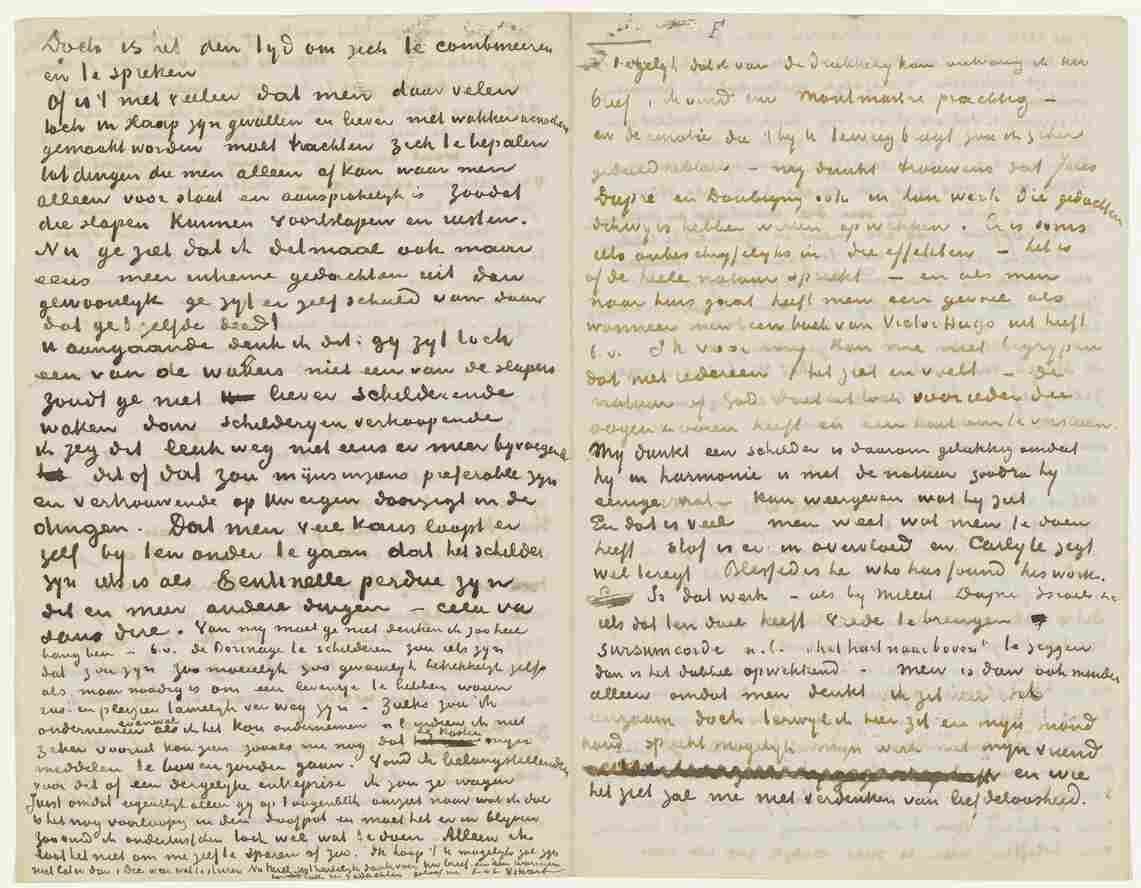 Doch is het den tyd om zich te combineeren
en te spreken
Of is 't niet veeleer dat men daar velen
toch in slaap zyn gevallen en liever niet wakker
gemaakt worden moet trachten zich te bepalen
tot dingen die men alleen af kan waar men
alleen voor staat en aansprakelyk is zoodat
die slapen kunnen voortslapen en rusten.
Nu ge ziet dat ik ditmaal ook maar
eens meer intieme gedachten uit dan
gewoonlyk ge zyt er zelf schuld van daar
dat ge 't zelfde deed
U aangaande denk ik dit: gy zyt toch
een van de wakers niet een van de slapers
zoudt ge niet liever schilderende
waken dan schilderyen verkoopende
ik zeg dit leuk weg niet eens er meer byvoegend
dit of dat zou mijns inziens preferable zyn
en vertrouwende op Uw eigen doorzigt in de
dingen. Dat men veel kans loopt er
zelf by ten onder te gaan dat het schilder
zyn iets is als Sentinelle perdue zyn
dit en meer andere dingen – cela va
sans dire. Van my moet ge niet denken ik zoo heel
bang ben – b.v. de Borinage te schilderen zou iets zyn
dat zou zyn zoo moeielyk zoo gevaarlyk betrekkelyk zelfs
als maar noodig is om een leventje te hebben waar
rust en plezier tamelyk ver weg zyn – Zulks zou ik
ondernemen evenwel als ik het kon ondernemen n.l. indien ik niet
zeker vooruit kon zien zooals me nog dat de kosten myn
middelen te boven zouden gaan. Vond ik belangstellenden
voor dit of een dergelyke entreprise ik zou ze wagen
Juist omdat eigenlyk alleen gy op 't oogenblik
is het nog voorloopig in den doofpot en moet het er in blyven
zoo vind ik ondertusschen toch wel wat te doen. Alleen ik
laat het niet om me zelf te sparen of zoo. Ik hoop 't U mogelyk zal zyn
F
dat ik van de drukkery kan ontvang ik Uw
brief, ik vind Uw Montmartre prachtig –
en de emotie die 't by U teweeg bragt zou ik zeker
gedeeld hebben – my dunkt trouwens dat Jules
Dupré en Daubigny ook in hun werk die gedachten
dikwyls hebben willen opwekken. Er is soms
iets onbeschryfelyks in die effekten – het is
of de heele natuur spreekt – en als men
naar huis gaat heeft men een gevoel als
wanneer men een boek van Victor Hugo uit heeft
b.v. Ik voor my kan me niet begrypen
dat niet iedereen 't het ziet en voelt – de
natuur of God doet dit toch voor ieder die
oogen & ooren heeft en een hart om te verstaan.
My dunkt een schilder is daarom gelukkig omdat
hy in harmonie is met de natuur zoodra hy
eenigermate kan weergeven wat hy ziet
En dat is veel men weet wat men te doen
heeft stof is er in overvloed en Carlyle zegt
wel teregt Blessed is he who has found his work.
Is dat werk – als by Millet Dupré Israels &c
iets dat ten doel heeft Vrede te brengen
sursum corda n.l. "het hart naar boven" te zeggen
dan is het dubbel opwekkend – Men is dan ook minder
alleen omdat men denkt ik zit hier wel
eenzaam doch terwyl ik hier zit en mijn mond
houd spreekt mogelyk mijn werk met mijn vriend
en wie
het ziet zal me niet verdenken van liefdeloosheid.